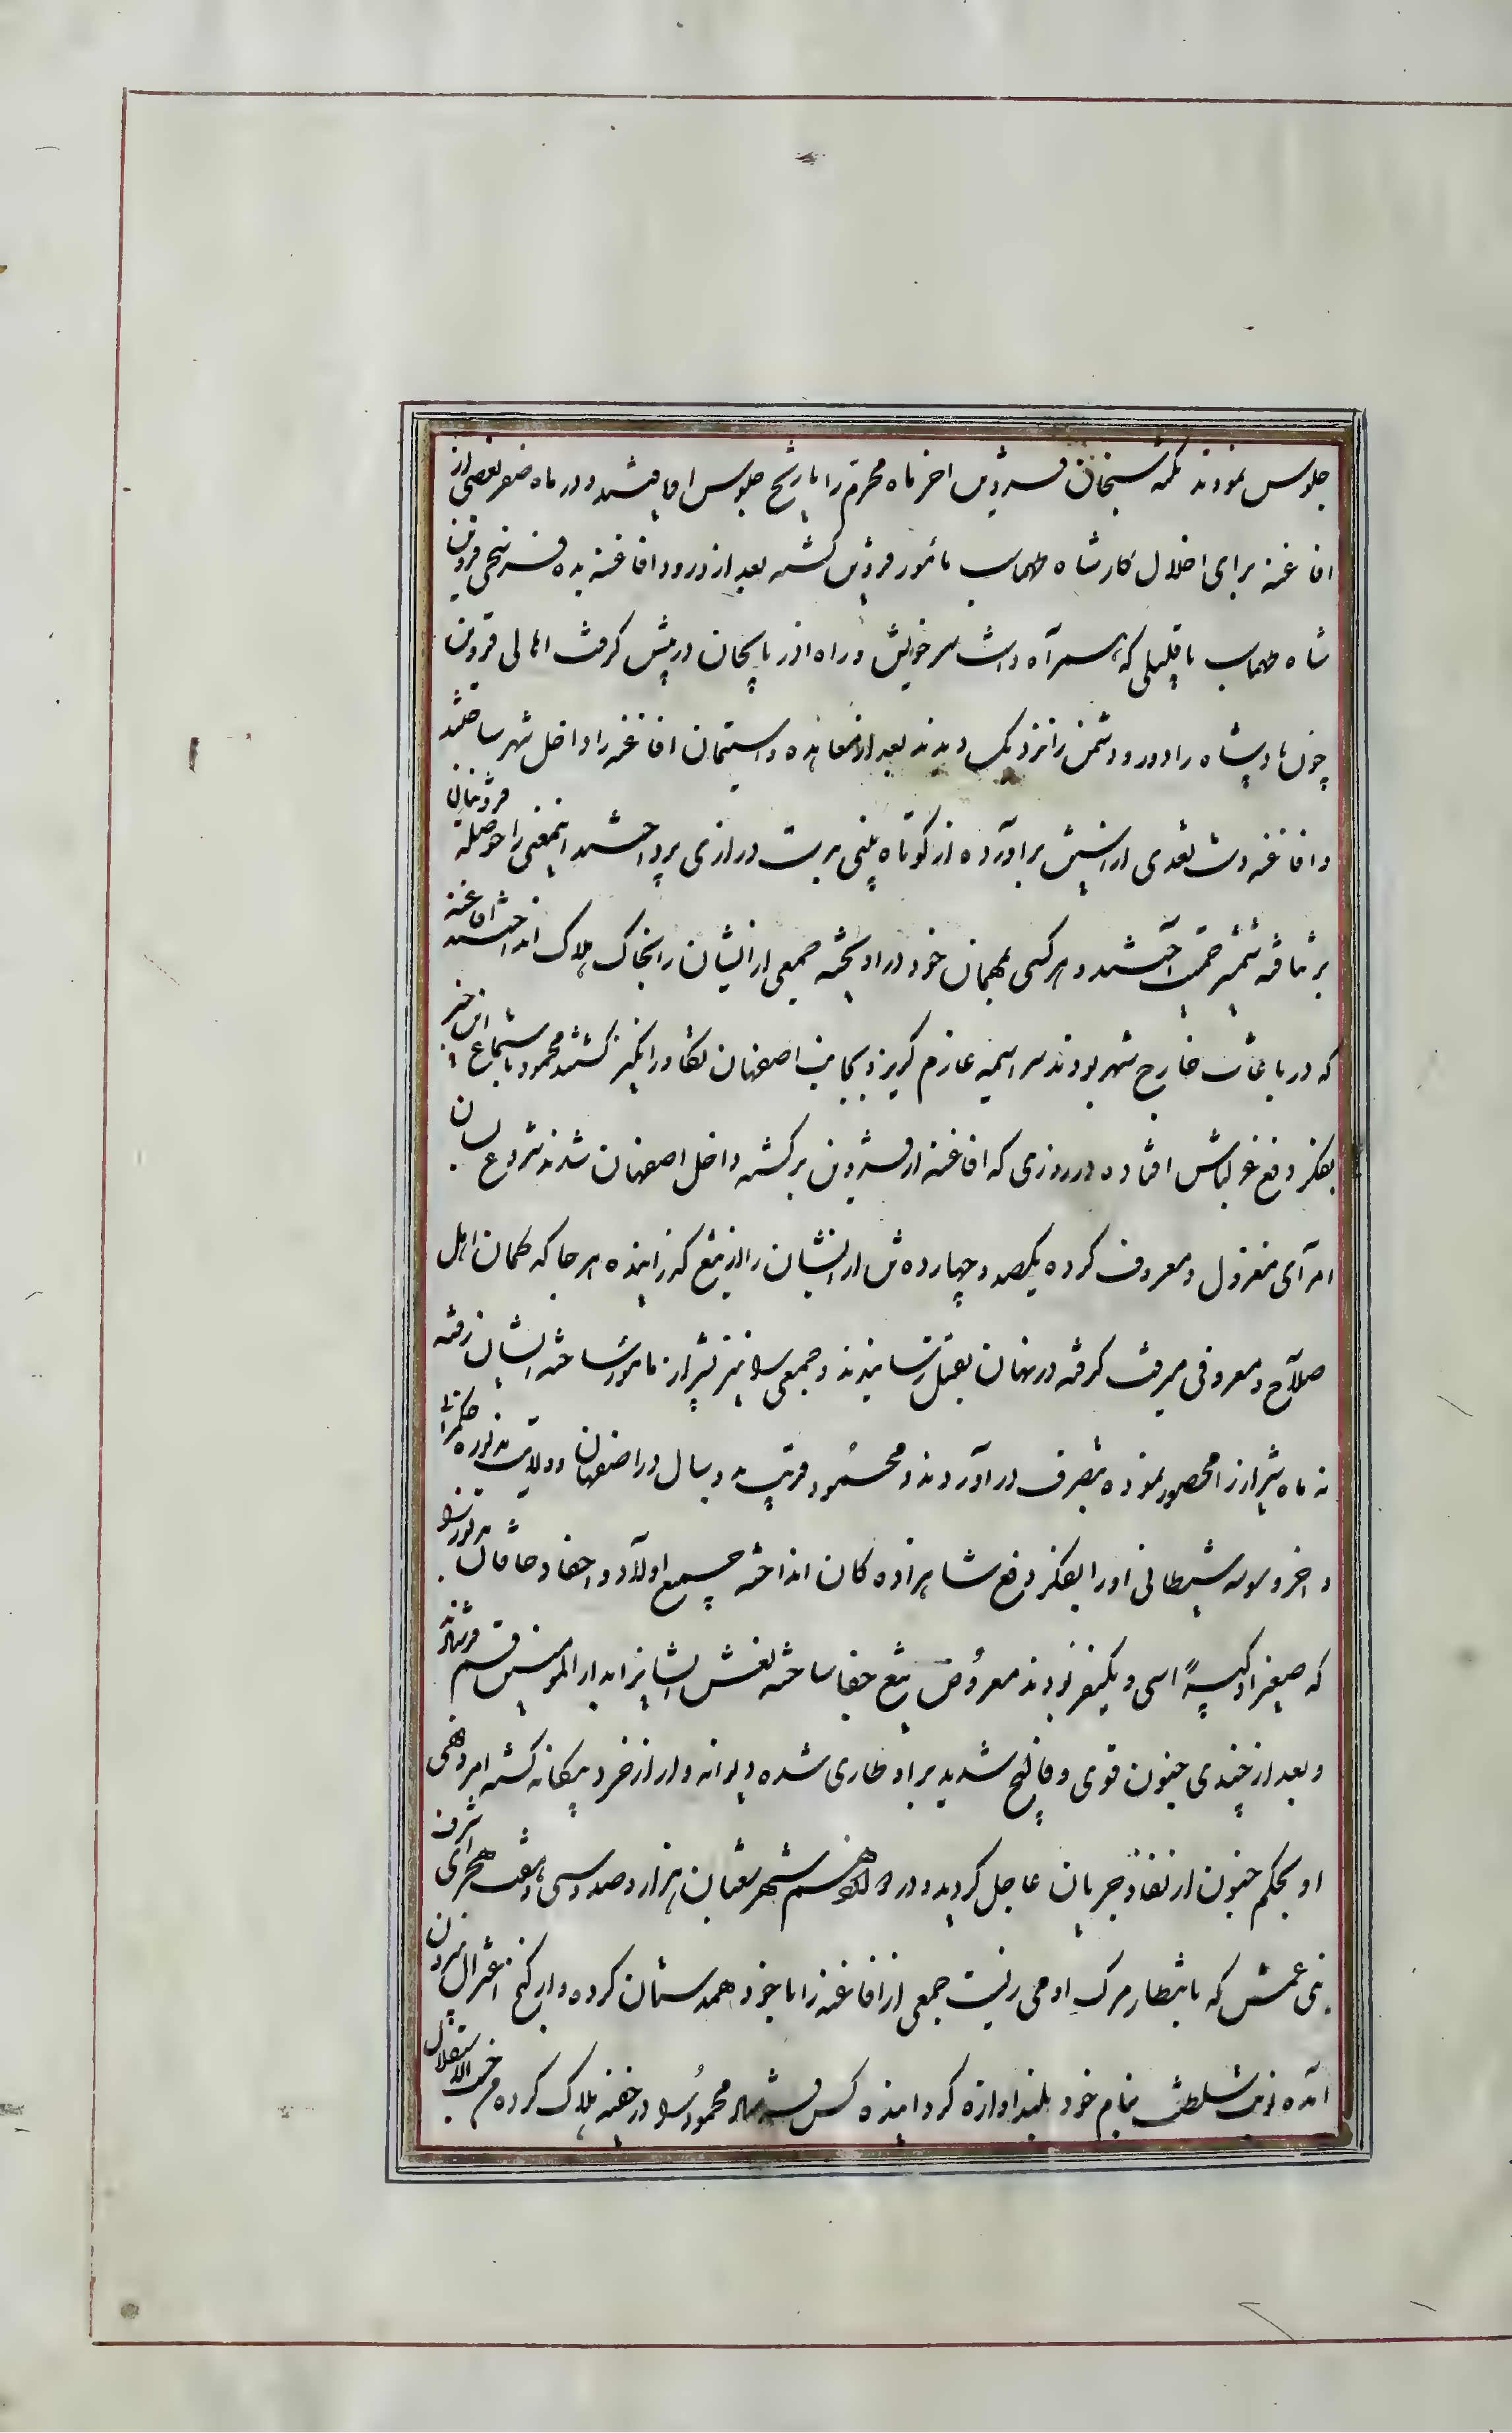 جلوس نمودند نکته سنجان قزوین اخر ماه محرم را تاریخ جلوس یافتند و در ماه صفر بعضی از
افاغنه برای اخلال کار شاه طهماسب مامور قزوین گشته بعد از ورود افاغنه بده فرسخی قزوین
شاه طهماسب با قلیلی که همراه داشت سر خویش و راه اذربایجان در پیش گرفت اهالی قزوین
چون پادشاه را دور و دشمن را نزدیک دیدند بعد از معاهده و استیمان افاغنه را داخل شهر ساختند
و افاغنه دست تعدی از استین براورده از کوتاه بینی بدست درازی پرداختند اینمعنی را حوصله قزوینیان
بر نتافته شمشیر حمیت آختند و هر کس بمهمان خود در اویخته جمعی از ایشان را بخاک هلاک انداختند افاغنه
که در باغات خارج شهر بودند سراسیمه عازم گریز و بجانب اصفهان تکاور انگیز گشتند محمود باستماع این خبر
بفکر دفع قزلباش افتاده در روزی که افاغنه از قزوین برگشته داخل اصفهان شدند شروع بسان
امرآی معزول و معروف کرده یکصد و چهارده تن از ایشان را از تیغ گذرانیده هر جا که گمان اهل
صلاح و معروفی میرفت گرفته در نهان بقتل رسانیدند و جمعی را نیز بشیراز مامور ساخته ایشان رفته
نه ماه شیراز را محصور نموده بتصرف در آوردند و محمود قریب به دو سال در اصفهان و ولایت مذکوره حکمرانی
و اخر وسوسه شیطانی او را بفکر دفع شاهزاده کان انداخته جمیع اولاد و احفاد خاقان مذکور را
که صغیرا و کبیرا سی و یکنفر بودند معروض تیغ جفا ساخته نعش ایشانرا بدار المومنین قم فرستاد
و بعد از چندی جنون قوی و فالج شدید بر او طاری شده دیوانه وار از خرد بیگانه گشته امر و نهی
او بحکم جنون از نفاذ و جریان عاجل گردید و در دوازدهم شهر شعبان هزار و صد و سی و هفت هجری اشرف
بنی عمش که بانتظار مرگ او می زیست جمعی از افاغنه را با خود همدستان کرده و از کنج اعتزال بیرون
آمده نوبت سلطنت بنام خود بلند اوازه گردانیده کس فرستاد محمود را در خفیه هلاک کرده من حیث الاستقلال